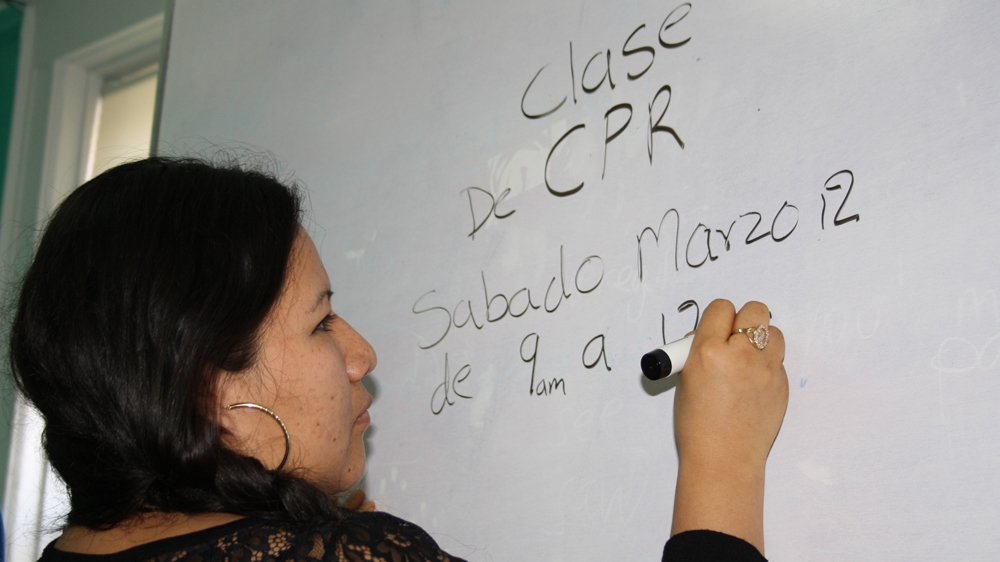 Clase
De CPR
Sabado Marzo 12
de 9am a 12